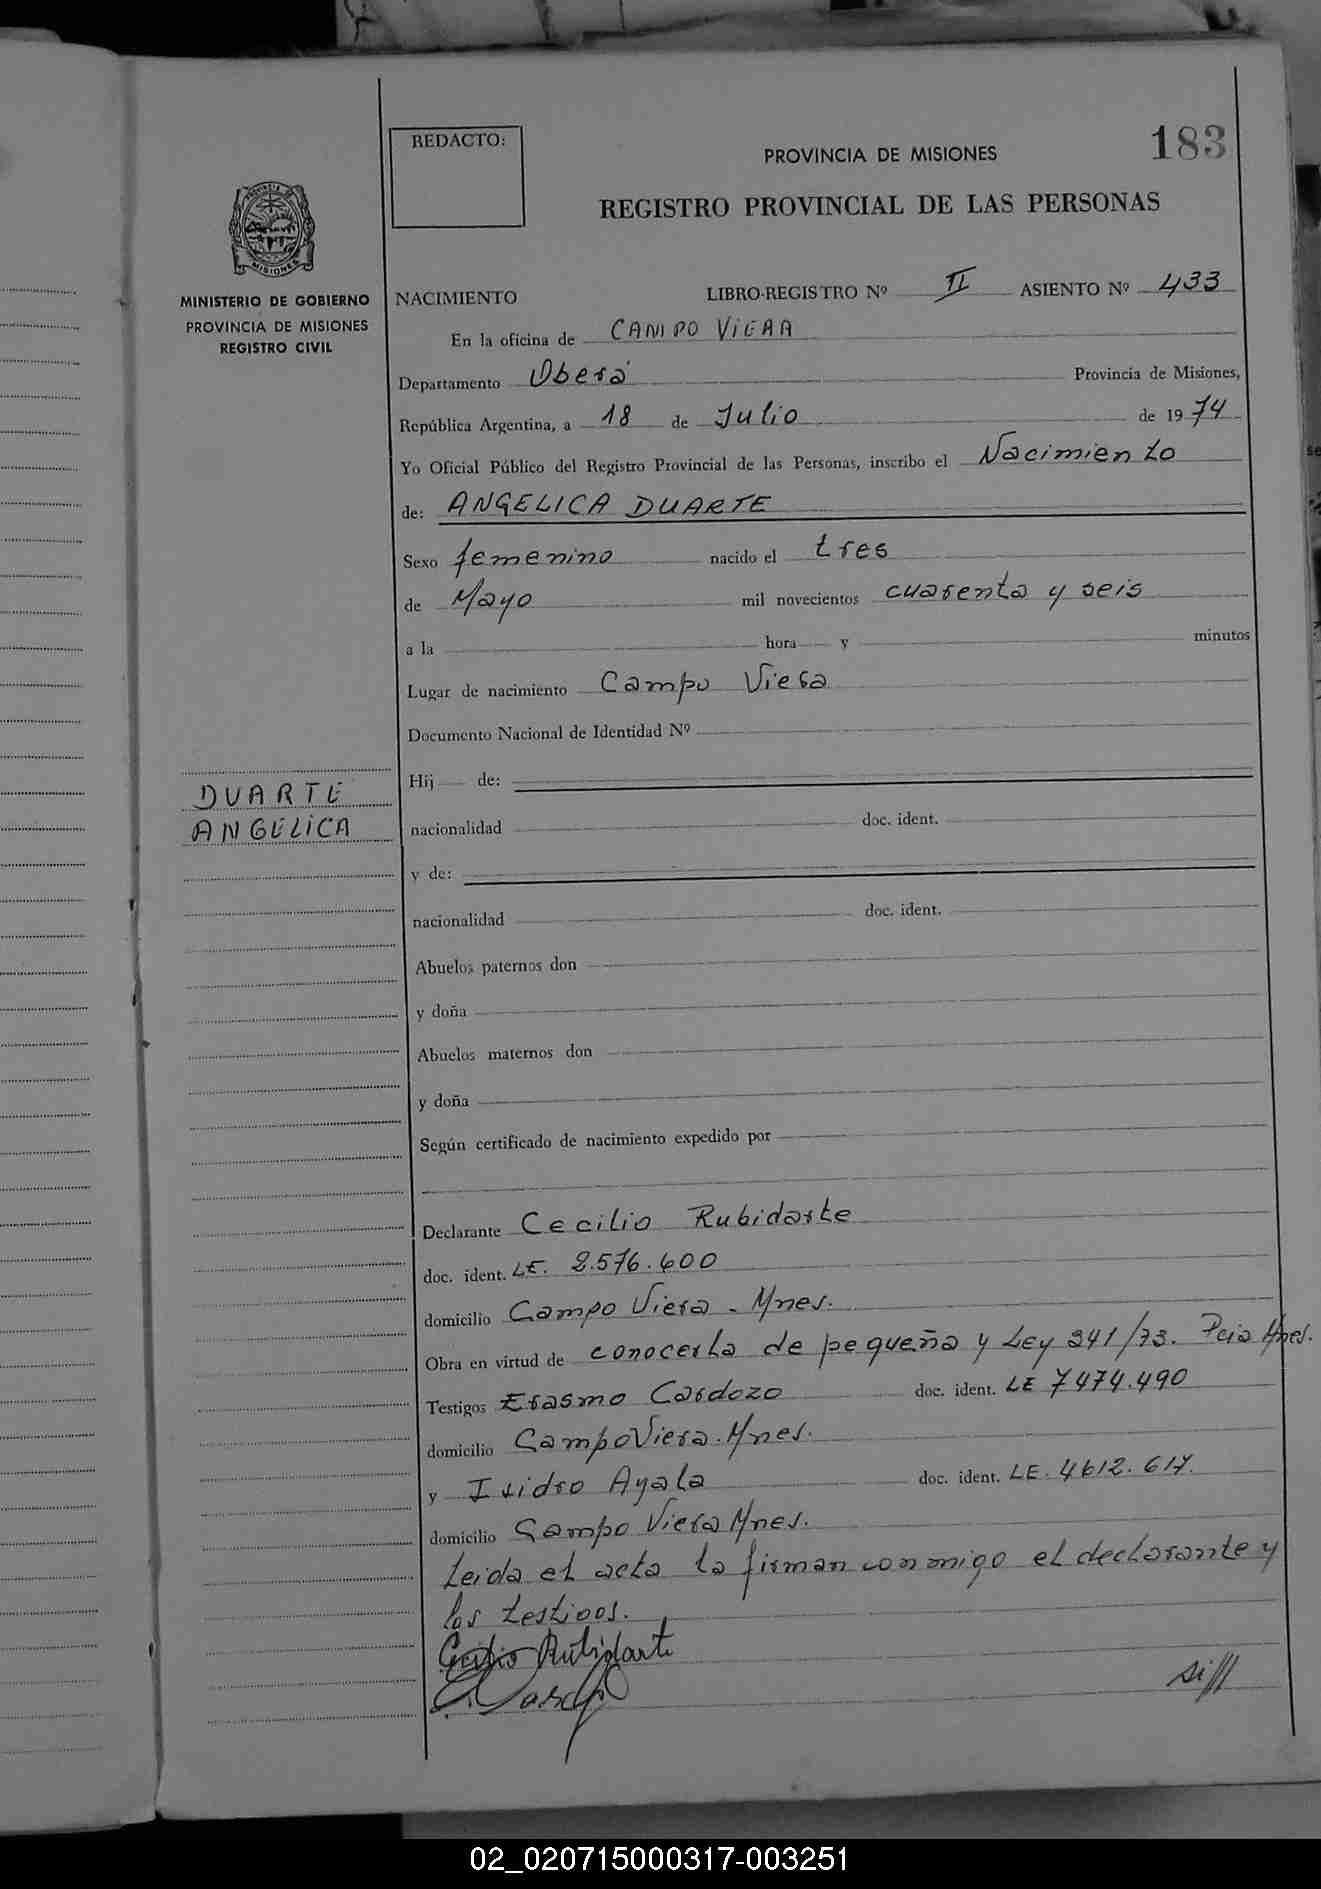 183
REDACTO:
PROVINCIA DE MISIONES
REGISTRO PROVINCIAL DE LAS PERSONAS
PROVINCIA DE
MISIONES
MINISTERIO DE GOBIERNO
PROVINCIA DE MISIONES
REGISTRO CIVIL
NACIMIENTO LIBRO-REGISTRO Nº II ASIENTO Nº 433
En la oficina de CAMPO VIERA
Departamento Oberá Provincia de Misiones,
República Argentina, a 18 de Julio de 1974
Yo Oficial Público del Registro Provincial de las Personas, inscribo el Nacimiento
de: ANGELICA DUARTE
Sexo femenino nacido el tres
de Mayo mil novecientos cuarenta y seis
a la hora y minutos
Lugar de nacimiento Campo Viera
Documento Nacional de Identidad Nº
Hij de:
DUARTE
ANGELICA
nacionalidad doc. ident.
y de:
nacionalidad doc. ident.
Abuelos paternos don
y doña
Abuelos maternos don
y doña
Según certificado de nacimiento expedido por
Declarante Cecilio Rubidarte
doc. ident. LE. 2.576.600
domicilio Campo Viera - Mnes.
Obra en virtud de conocerla de pequeña y Ley 341/73. Pcia Mnes.
Testigos Erasmo Cardozo doc. ident. LE 7474.490
domicilio Campo Viera. Mnes.
y Isidro Ayala doc. ident. LE. 4612.617.
domicilio Campo Viera Mnes.
Leida el acta la firman conmigo el declarante y
los testigos.
Cecilio Rubidarte
si//
02_020715000317-003251